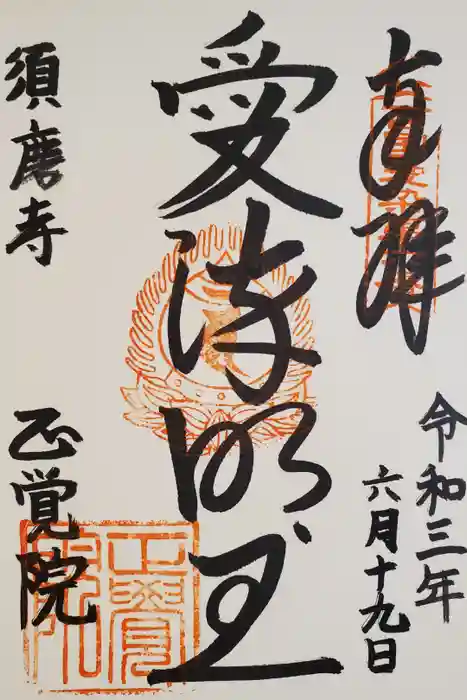 奉拝
令和三年
六月十九日
愛染明王
須磨寺
正覚院